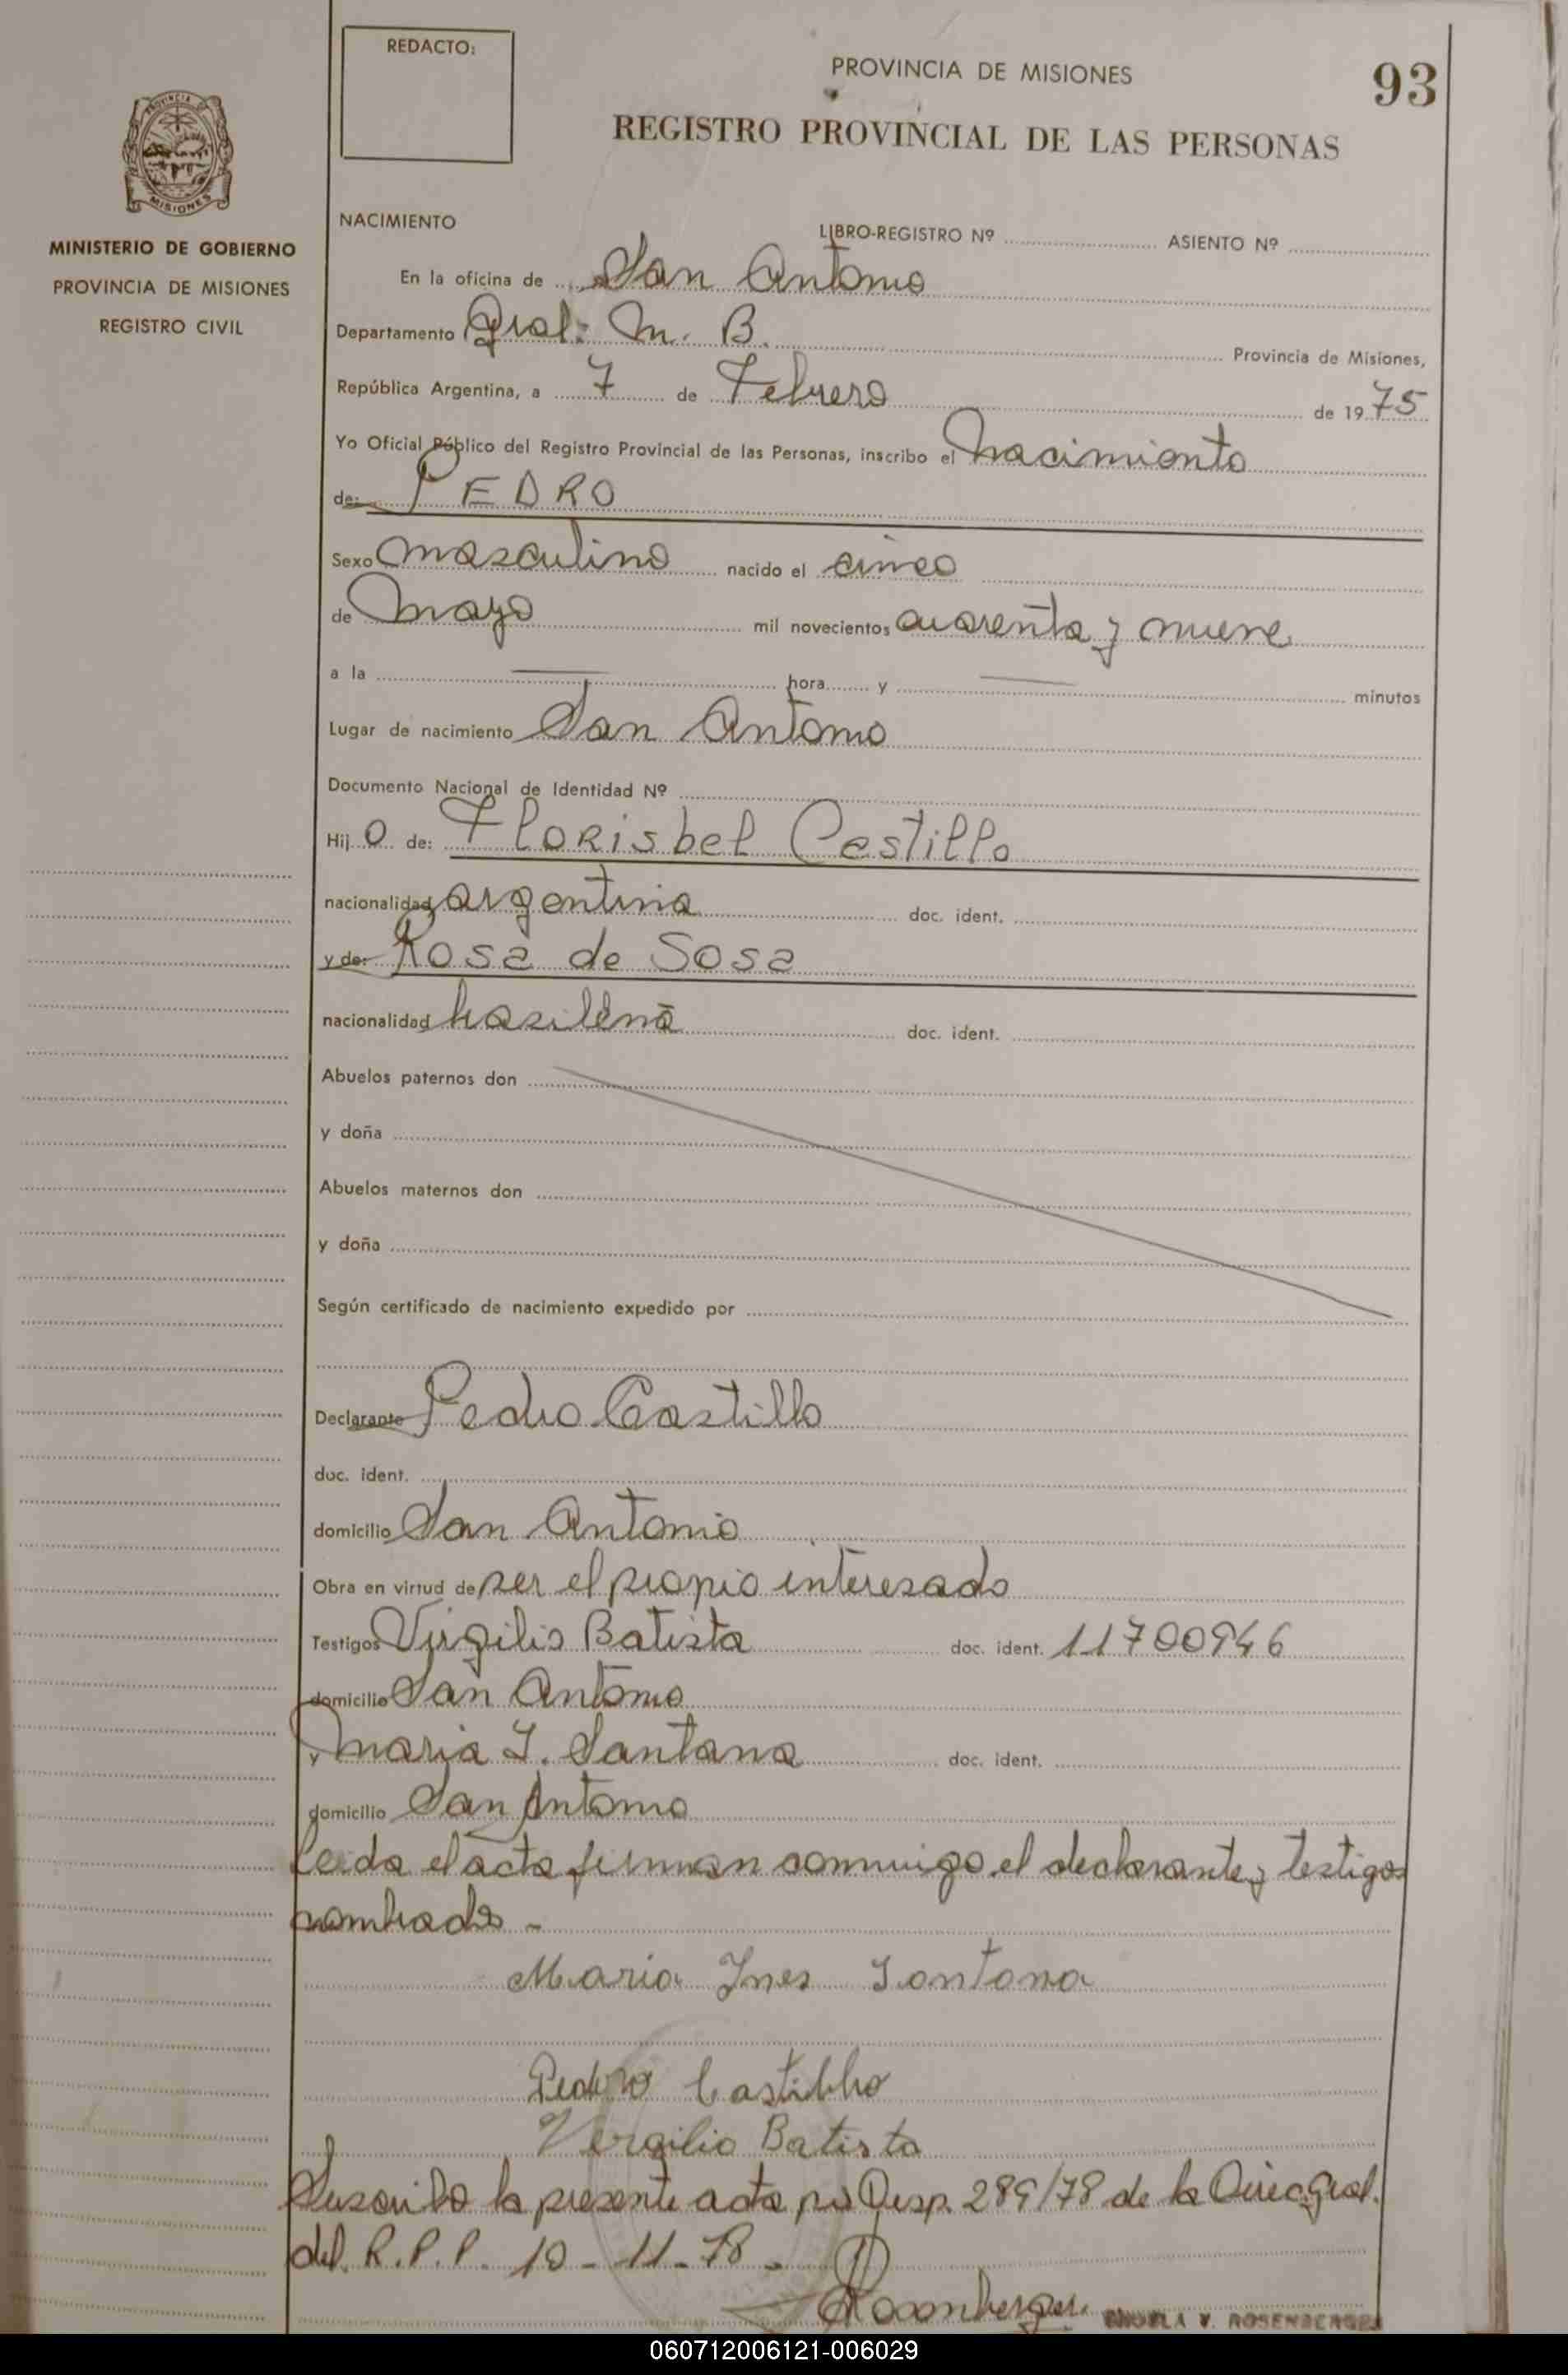 REDACTO:
PROVINCIA DE MISIONES
93
REGISTRO PROVINCIAL DE LAS PERSONAS
PROVINCIA DE
MISIONES
MINISTERIO DE GOBIERNO
PROVINCIA DE MISIONES
REGISTRO CIVIL
NACIMIENTO
LIBRO-REGISTRO Nº ASIENTO Nº
En la oficina de San Antonio
Departamento Gral. M. B. Provincia de Misiones,
República Argentina, a 7 de Febrero de 1975
Yo Oficial Público del Registro Provincial de las Personas, inscribo el nacimiento
de: PEDRO
Sexo masculino nacido el cinco
de mayo mil novecientos cuarenta y nueve
a la — hora y — minutos
Lugar de nacimiento San Antonio
Documento Nacional de Identidad Nº
Hijo de: Florisbel Castillo
nacionalidad argentina doc. ident.
y de: Rosa de Sosa
nacionalidad brasileña doc. ident.
Abuelos paternos don
y doña
Abuelos maternos don
y doña
Según certificado de nacimiento expedido por
Declarante Pedro Castillo
doc. ident.
domicilio San Antonio
Obra en virtud de ser el propio interesado
Testigos Virgilio Batista doc. ident. 11700946
domicilio San Antonio
y Maria I. Santana doc. ident.
domicilio San Antonio
Leida el acta firman conmigo el declarante y testigos
nombrados -
Maria Ines Santana
Pedro Castilho
Vergilio Batista
Suscribo la presente acta por Disp. 289/78 de la Direc. Gral.
del R.P.P. 10-11-78.
Rosenberger
V. ROSENBERGER
060712006121-006029